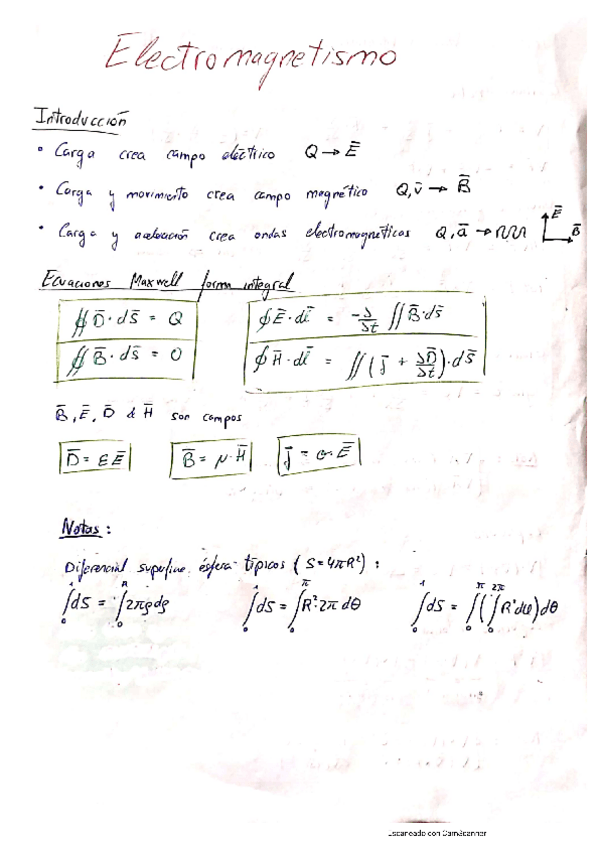 Electromagnetismo
Introducción
• Carga crea campo eléctrico Q → E̅
• Carga y movimiento crea campo magnético Q, v̅ → B̅
• Carga y aceleración crea ondas electromagnéticas Q, a̅ → E̅ B̅
Ecuaciones Maxwell forma integral
∯ D̅ · ds̅ = Q
∯ B̅ · ds̅ = 0
∮ E̅ · dl̅ = -Δ/Δt ∬ B̅ · ds̅
∮ H̅ · dl̅ = ∬ (j̅ + ΔD̅/Δt) · ds̅
B̅, E̅, D̅ & H̅ son campos
D̅ = ε E̅ B̅ = μ · H̅ j̅ = σ · E̅
Notas:
Diferencial superficie esfera típicos (S = 4πR²):
∫₀¹ dS = ∫₀ᴿ 2πρdρ ∫₀¹ dS = ∫₀^π R² · 2π dθ ∫₀¹ dS = ∫₀^π (∫₀^2π R² dφ) dθ
Escaneado con CamScanner